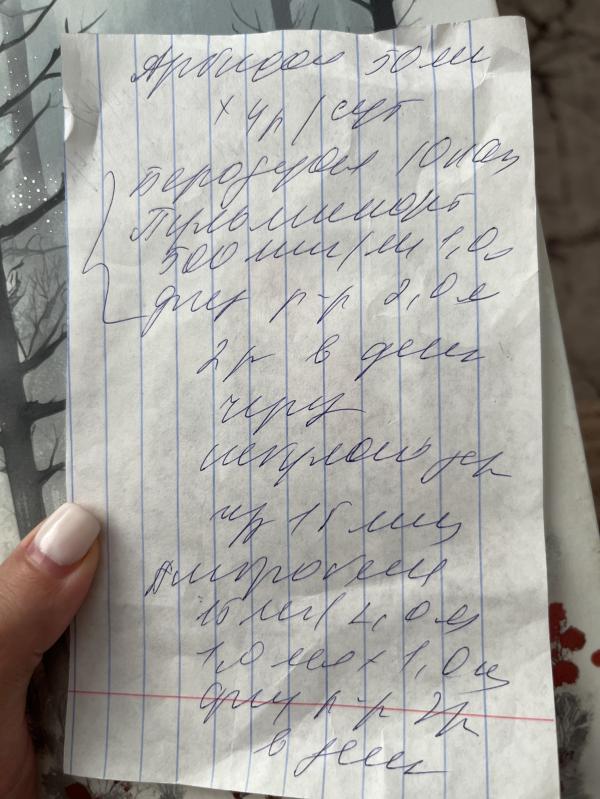 Арбидол 50 мг
х 4 р/сут
Беродуал 10 кап
Пульмикорт
500 мкг/мл 1,0
физ р-р 2,0 мл
2 р в день
через
небулайзер
чр 15 мин
Амбробене
15 мг/2,0 мл
1,0 мл + 1,0
физ р-р 2 р
в день